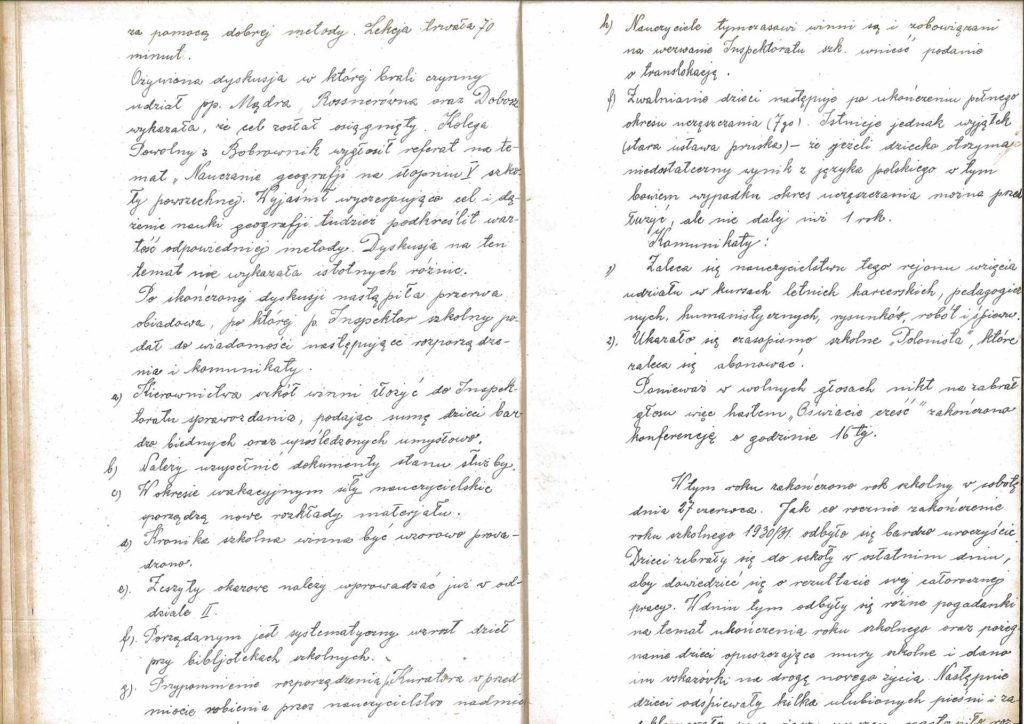 za pomocą dobrej metody. Lekcja trwała 70
minut.
Ożywiona dyskusja w której brali czynny
udział pp. Mądra, Rossnerówna oraz Dobosz
wykazała, że cel został osiągnięty. Kolega
Powolny z Bobrownik wygłosił referat na te-
mat „Nauczanie geografji na stopniu I szko-
ły powszechnej. Wyjaśnił wyczerpująco cel i dą-
żenie nauki geografji tudzież podkreślił war-
tość odpowiedniej metody. Dyskusja na ten
temat nie wykazała istotnych różnic.
Po skończonej dyskusji nastąpiła przerwa
obiadowa, po której p. Inspektor szkolny po-
dał do wiadomości następujące rozporządze-
nia i komunikaty.
a) Kierownictwa szkół winni złożyć do Inspek-
toratu sprawozdania, podając sumę dzieci bar-
dzo biednych oraz upośledzonych umysłowo.
b) Należy uzupełnić dokumenty stanu służby.
c) W okresie wakacyjnym siły nauczycielskie
sporządzą nowe rozkłady materjału.
d) Kronika szkolna winna być wzorowo prowa-
dzona.
e). Zeszyty okazowe należy wprowadzać już w od-
dziale II.
f). Porządanym jest systematyczny wzrost dzieł
przy bibljotekach szkolnych.
g). Przypomnienie rozporządzenia p. Kuratora w przed
miocie robienia przez nauczycielstwo nadmie
h) Nauczyciele tymczasowi winni są i zobowiązani
na wezwanie Inspektoratu szk. wnieść podanie
o translokację.
i) Zwalnianie dzieci następuje po ukończeniu pełnego
okresu uczęszczania (7go). Istnieje jednak wyjątek
(stara ustawa pruska) – że jeżeli dziecko otrzyma
niedostateczny wynik z języka polskiego w tym
bowiem wypadku okres uczęszczania można przed
łużyć, ale nie dalej niż 1 rok.
Komunikaty:
1) Zaleca się nauczycielstwu tego rejonu wzięcia
udziału w kursach letnich harcerskich, pedagogicz
nych, humanistycznych, rysunków, robót i śpiewu.
2). Ukazało się czasopismo szkolne „Polonista", które
zaleca się abonować.
Ponieważ w wolnych głosach nikt nie zabrał
głosu więc hasłem „Oświacie cześć" zakończono
konferencję o godzinie 16tej.
W tym roku zakończono rok szkolny w sobotę
dnia 27 czerwca. Jak co rocznie zakończenie
roku szkolnego 1930/31. odbyło się bardzo uroczyście.
Dzieci zebrały się do szkoły w ostatnim dniu,
aby dowiedzieć się o rezultacie swej całorocznej
pracy. W dniu tym odbyły się różne pogadanki
na temat ukończenia roku szkolnego oraz pożeg
nanie dzieci opuszczające mury szkolne i dano
im wskazówki na drogę nowego życia. Następnie
dzieci odśpiewały kilka ulubionych pieśni i za